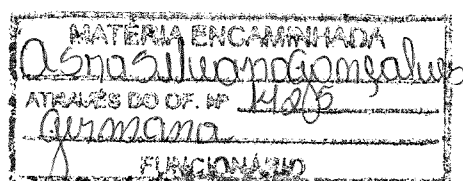 MATÉRIA ENCAMINHADA
a Sra Silvana Gonçalves
ATRAVÉS DO OF. Nº 1485
Germana
FUNCIONÁRIO